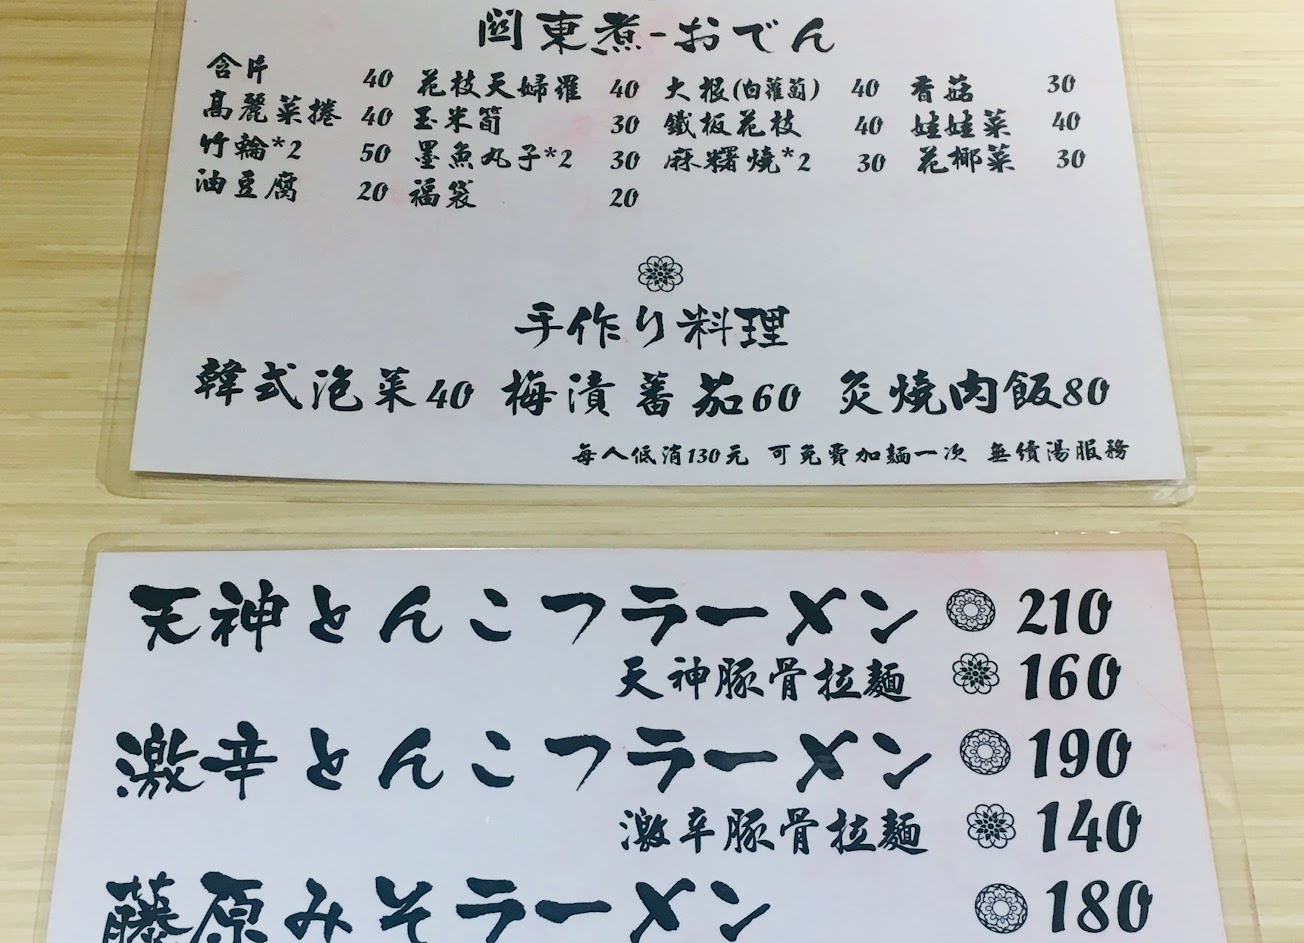 関東煮-おでん
含片 40 花枝天婦羅 40 大根(白蘿蔔) 40 香菇 30
高麗菜捲 40 玉米筍 30 鐵板花枝 40 娃娃菜 40
竹輪*2 50 墨魚丸子*2 30 麻糬燒*2 30 花椰菜 30
油豆腐 20 福袋 20
手作り料理
韓式泡菜40 梅漬蕃茄60 炙燒肉飯80
每人低消130元 可免費加麵一次 無續湯服務
天神とんこつラーメン 210
天神豚骨拉麵 160
激辛とんこつラーメン 190
激辛豚骨拉麵 140
藤原みそラーメン 180